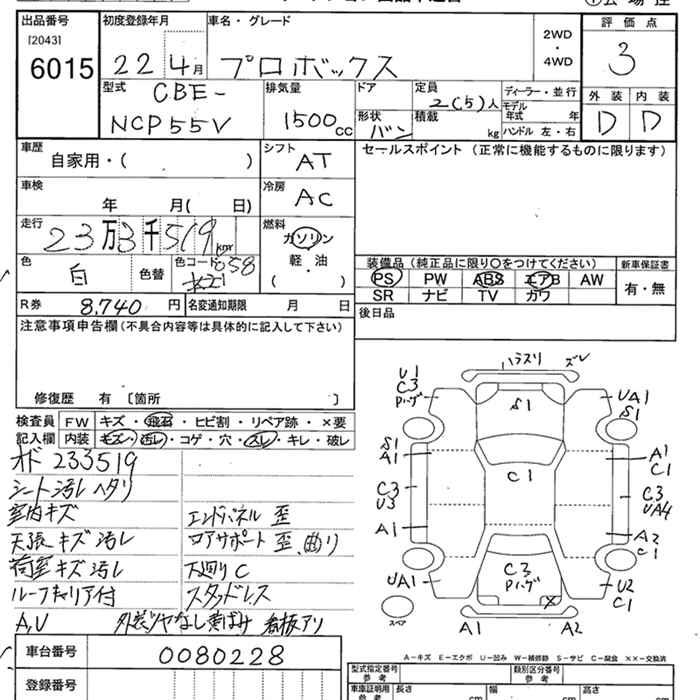 出品番号 初度登録年月 車名・グレード 評価点
[2043]
6015 22 4月 プロボックス 2WD・4WD 3
型式 CBE-NCP55V 排気量 1500cc ドア 定員 2(5)人 ディーラー・並行 外装 内装
形状 バン 積載 kg モデル年式 年 ハンドル 左・右 D D
車歴 自家用・( ) シフト AT セールスポイント (正常に機能するものに限ります)
車検 年 月( 日) 冷房 AC
走行 23万3千519km 燃料 ガソリン
軽・油
( )
色 白 色替 色コード 058 装備品 (純正品に限り○をつけてください) 新車保証書
PS PW ABS エアB AW 有・無
SR ナビ TV カワ
R券 8,740円 名変通知期限 月 日 後日品
注意事項申告欄(不具合内容等は具体的に記入して下さい)
修復歴 有 〔箇所 〕
検査員 FW キズ・飛石・ヒビ割・リペア跡・×要
記入欄 内装 キズ・汚レ・コゲ・穴・スレ・キレ・破レ
オド 233519
シート汚レ ヘタリ
室内キズ エンドパネル 歪
天張キズ 汚レ ロアサポート 歪、曲リ
荷室キズ 汚レ 下廻りC
ルーフキャリア付 スタッドレス
A,U 外装ツヤなし黄ばみ 看板アリ
車台番号 0080228
登録番号
ハラスリ ズレ
U1
C3
Pハゲ
S1
UA1
S1
S1
A1
C1
A1
C1
C3
U3
C3
UA4
A1
A2
C1
UA1
C3
Pハゲ
U2
C1
スペア
A1 A2
A-キズ E-エクボ U-凹み W-補修跡 S-サビ C-腐食 ××-交換済
型式指定番号 参考 類別区分番号 参考
車庫証明用 参考 長さ cm 幅 cm 高さ cm